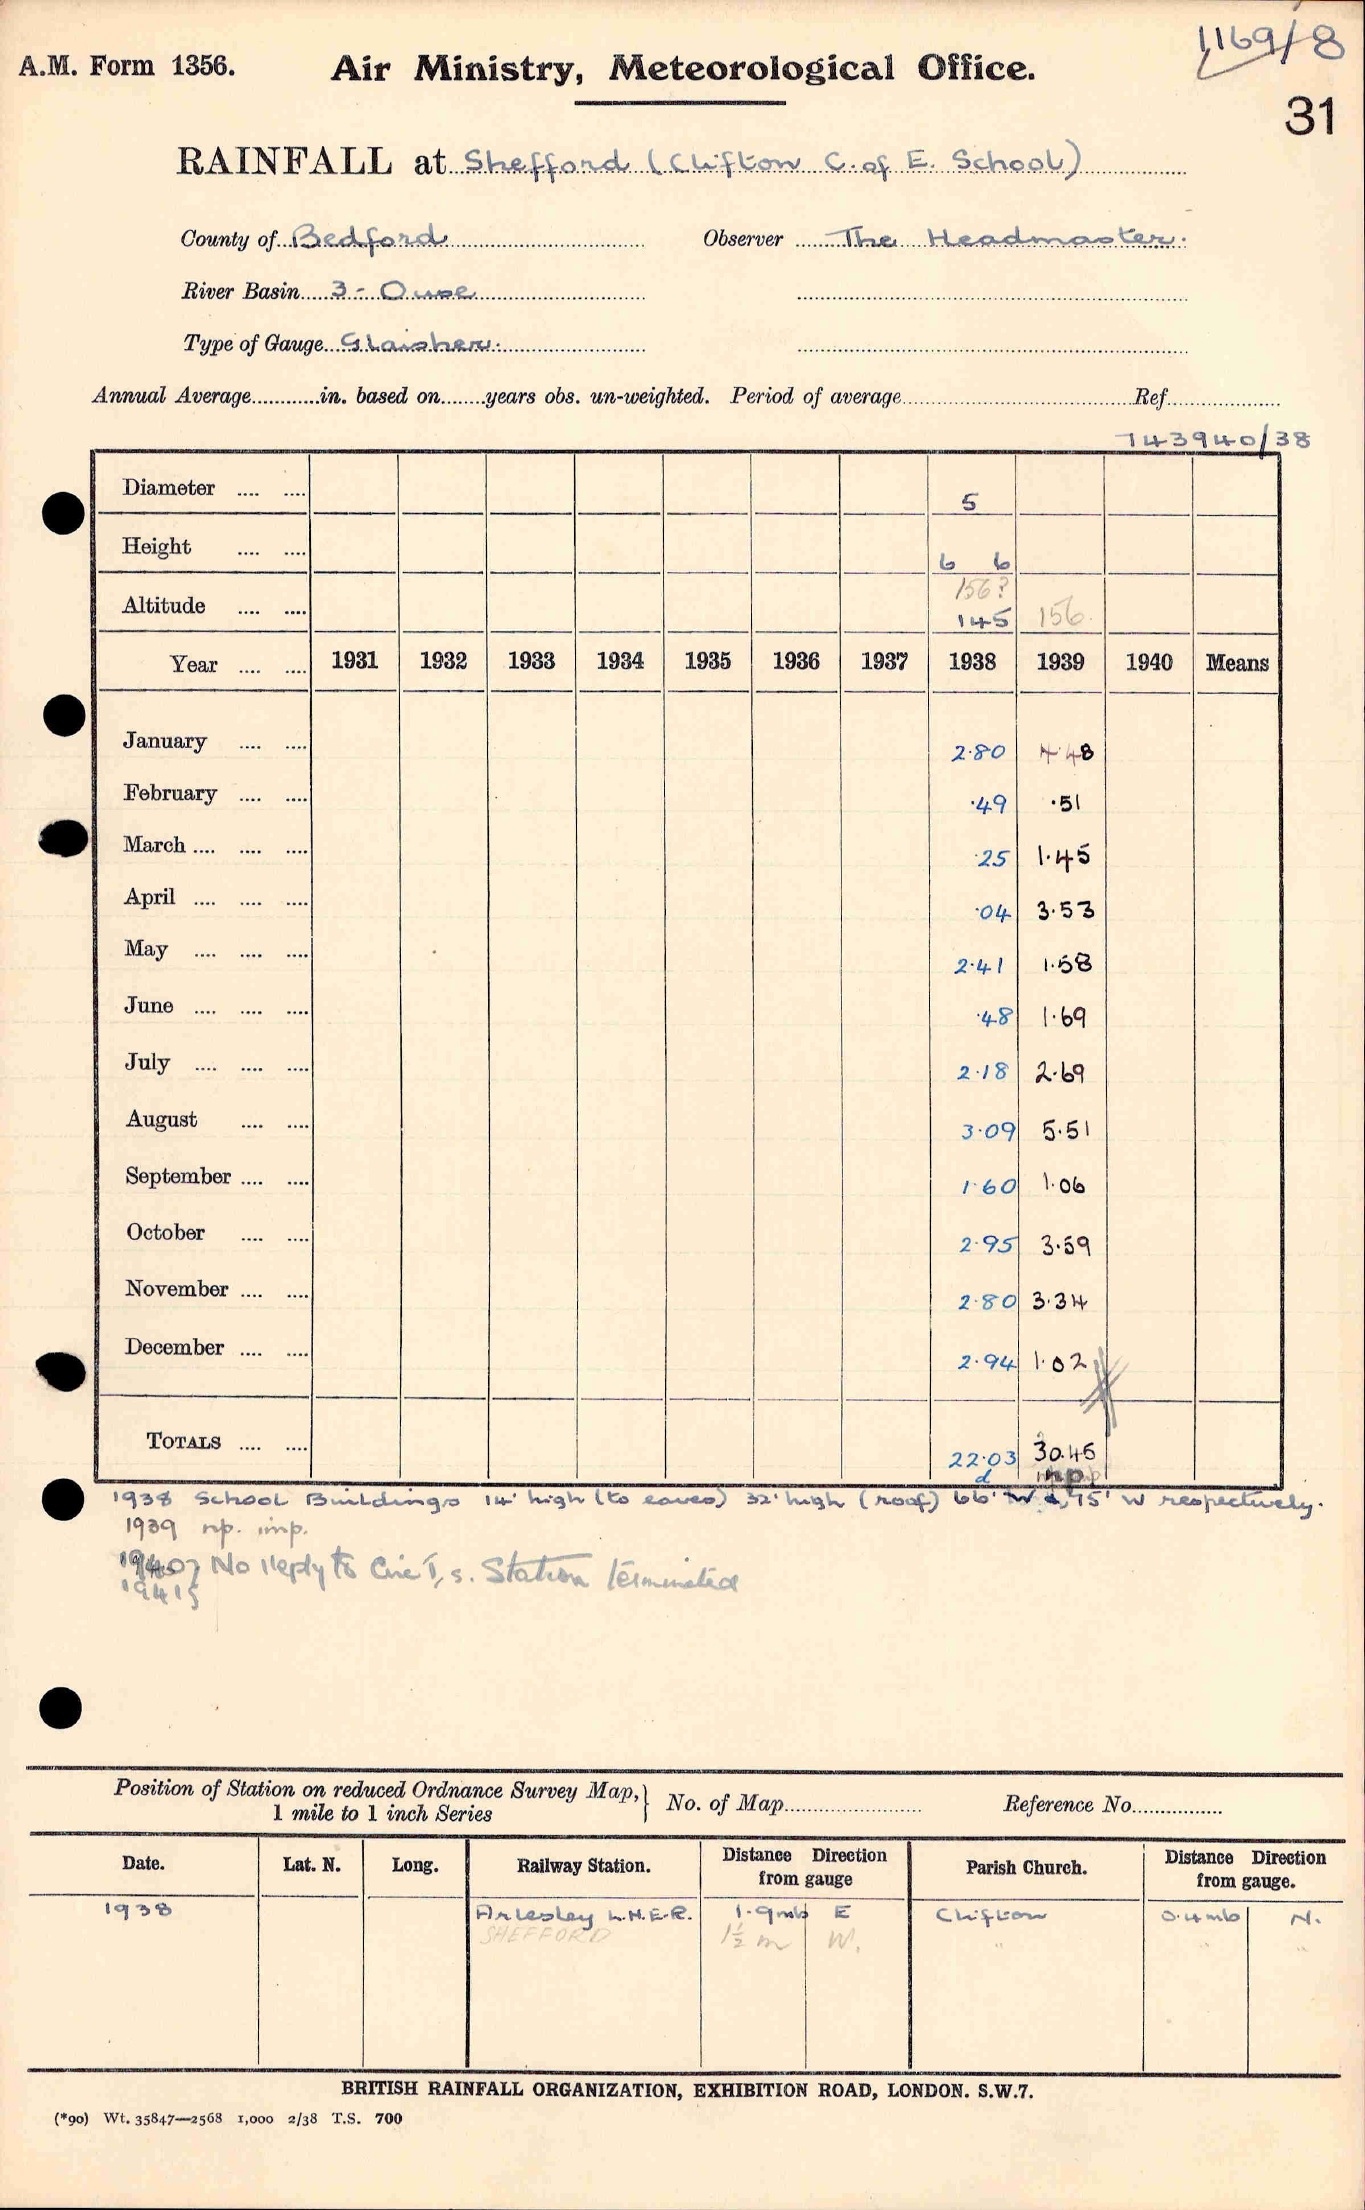 1169/8
A.M. Form 1356. Air Ministry, Meteorological Office.
31
RAINFALL at Shefford (Clifton C. of E. School)
County of Bedford Observer The Headmaster.
River Basin 3 - Ouse
Type of Gauge Glaisher.
Annual Average in. based on years obs. un-weighted. Period of average Ref
743940/38
Diameter 5
Height 6 6
156?
Altitude 145 156
Year 1931 1932 1933 1934 1935 1936 1937 1938 1939 1940 Means
January 2.80 4.48
February .49 .51
March .25 1.45
April .04 3.53
May 2.41 1.58
June .48 1.69
July 2.18 2.69
August 3.09 5.51
September 1.60 1.06
October 2.95 3.59
November 2.80 3.34
December 2.94 1.02
TOTALS 22.03 30.45
d
1938 School Buildings 14' high (to eaves) 32' high (roof) 66' W &, 75' W respectively.
1939 np. imp.
1940} No reply to Circ I, s. Station terminated
1941}
Position of Station on reduced Ordnance Survey Map,} No. of Map Reference No.
1 mile to 1 inch Series
Date. Lat. N. Long. Railway Station. Distance Direction from gauge Parish Church. Distance Direction from gauge.
1938 Arlesley L.N.E.R. 1.9 mls E Clifton 0.4 mls N.
SHEFFORD 1½ m W. " " "
BRITISH RAINFALL ORGANIZATION, EXHIBITION ROAD, LONDON. S.W.7.
(*90) Wt. 35847—2568 1,000 2/38 T.S. 700